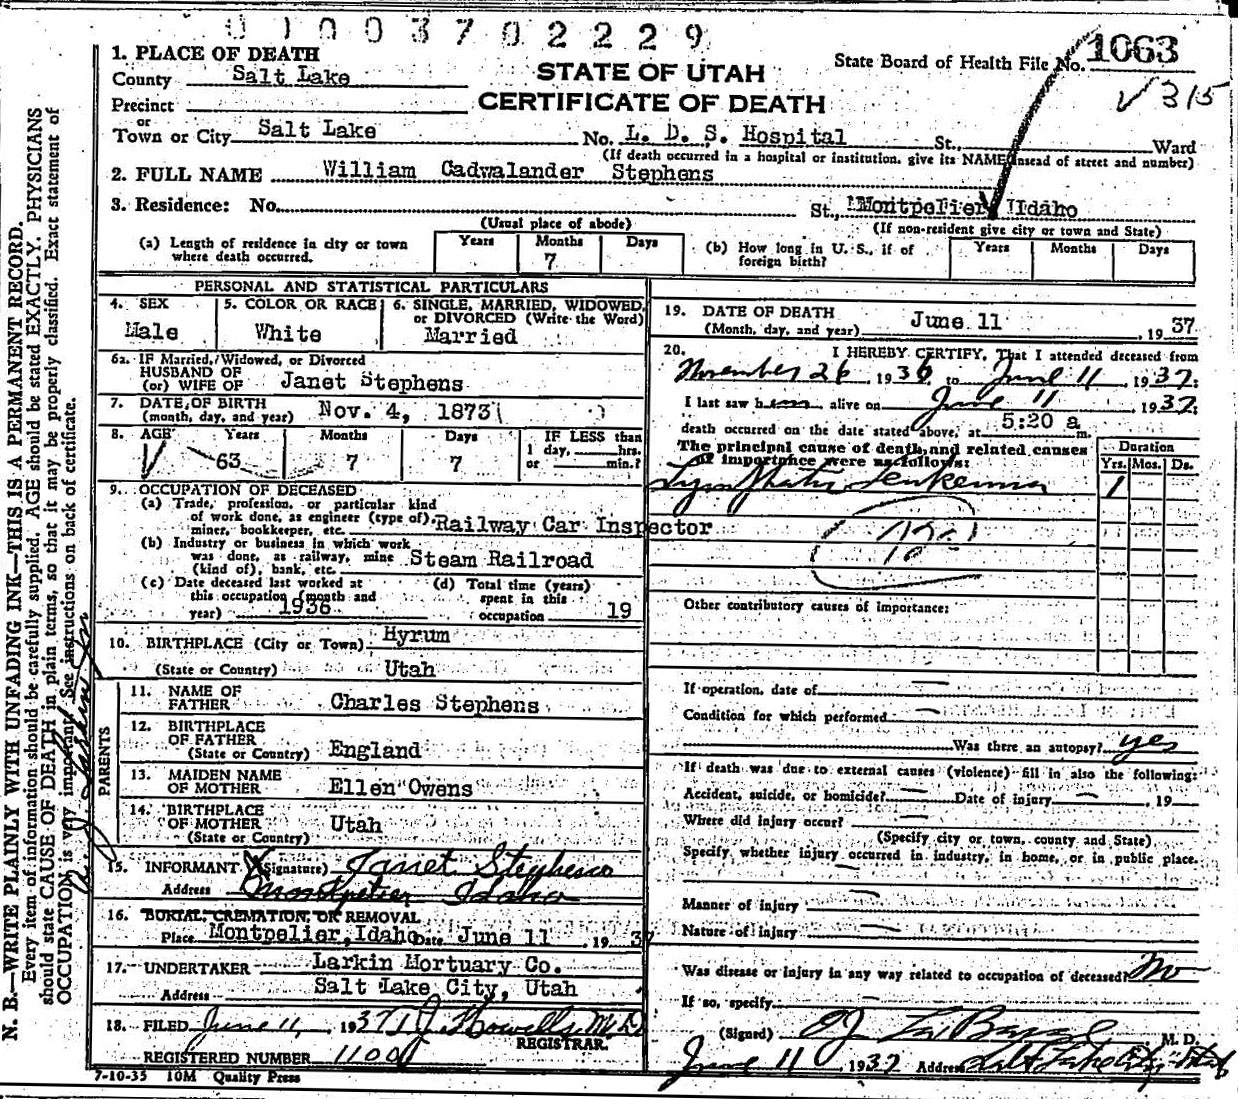 0 1 0 0 3 7 0 2 2 2 9
1. PLACE OF DEATH
County Salt Lake
Precinct
or
Town or City Salt Lake
STATE OF UTAH
CERTIFICATE OF DEATH
State Board of Health File No. 1063
✓ 315
No. L. D. S. Hospital St., Ward
(If death occurred in a hospital or institution, give its NAME insead of street and number)
2. FULL NAME William Cadwalander Stephens
3. Residence: No. St., Montpelier, Idaho
(Usual place of abode) (If non-resident give city or town and State)
(a) Length of residence in city or town where death occurred. Years Months 7 Days
(b) How long in U. S., if of foreign birth? Years Months Days
PERSONAL AND STATISTICAL PARTICULARS
4. SEX Male
5. COLOR OR RACE White
6. SINGLE, MARRIED, WIDOWED, or DIVORCED (Write the Word) Married
6a. IF Married, Widowed, or Divorced
HUSBAND OF
(or) WIFE OF Janet Stephens
7. DATE OF BIRTH
(month, day, and year) Nov. 4, 1873
8. AGE Years 63 Months 7 Days 7 IF LESS than 1 day, hrs. or min.?
9. OCCUPATION OF DECEASED
(a) Trade, profession, or particular kind
of work done, as engineer (type of),
miner, bookkeeper, etc. Railway Car Inspector
(b) Industry or business in which work
was done, as railway, mine
(kind of), bank, etc. Steam Railroad
(c) Date deceased last worked at
this occupation (month and
year) 1936
(d) Total time (years)
spent in this
occupation 19
10. BIRTHPLACE (City or Town) Hyrum
(State or Country) Utah
PARENTS
11. NAME OF
FATHER Charles Stephens
12. BIRTHPLACE
OF FATHER
(State or Country) England
13. MAIDEN NAME
OF MOTHER Ellen Owens
14. BIRTHPLACE
OF MOTHER
(State or Country) Utah
15. INFORMANT X (Signature) Janet Stephens
Address Montpelier Idaho
16. BURIAL, CREMATION, OR REMOVAL
Place Montpelier, Idaho Date June 11, 1937
17. UNDERTAKER Larkin Mortuary Co.
Address Salt Lake City, Utah
18. FILED June 11, 1937 T J Howells, M.D.
REGISTRAR.
REGISTERED NUMBER 1100
7-10-35 10M Quality Press
19. DATE OF DEATH
(Month, day, and year) June 11, 1937
20. I HEREBY CERTIFY, That I attended deceased from
November 26, 1936, to June 11, 1937;
I last saw him alive on June 11, 1937;
death occurred on the date stated above, at 5:20 a m.
The principal cause of death and related causes
of importance were as follows:
Duration
Yrs. Mos. Ds.
Lymphatic Leukemia 1
Other contributory causes of importance:
If operation, date of —
Condition for which performed —
Was there an autopsy? yes
If death was due to external causes (violence) fill in also the following:
Accident, suicide, or homicide? — Date of injury —, 19
Where did injury occur? —
(Specify city or town, county and State)
Specify whether injury occurred in industry, in home, or in public place.
Manner of injury —
Nature of injury —
Was disease or injury in any way related to occupation of deceased? No
If so, specify
(Signed) M. D.
June 11 1937 Address Salt Lake City Utah
N. B.—WRITE PLAINLY WITH UNFADING INK—THIS IS A PERMANENT RECORD.
Every item of information should be carefully supplied. AGE should be stated EXACTLY. PHYSICIANS
should state CAUSE OF DEATH in plain terms, so that it may be properly classified. Exact statement of
OCCUPATION is very important. See instructions on back of certificate.